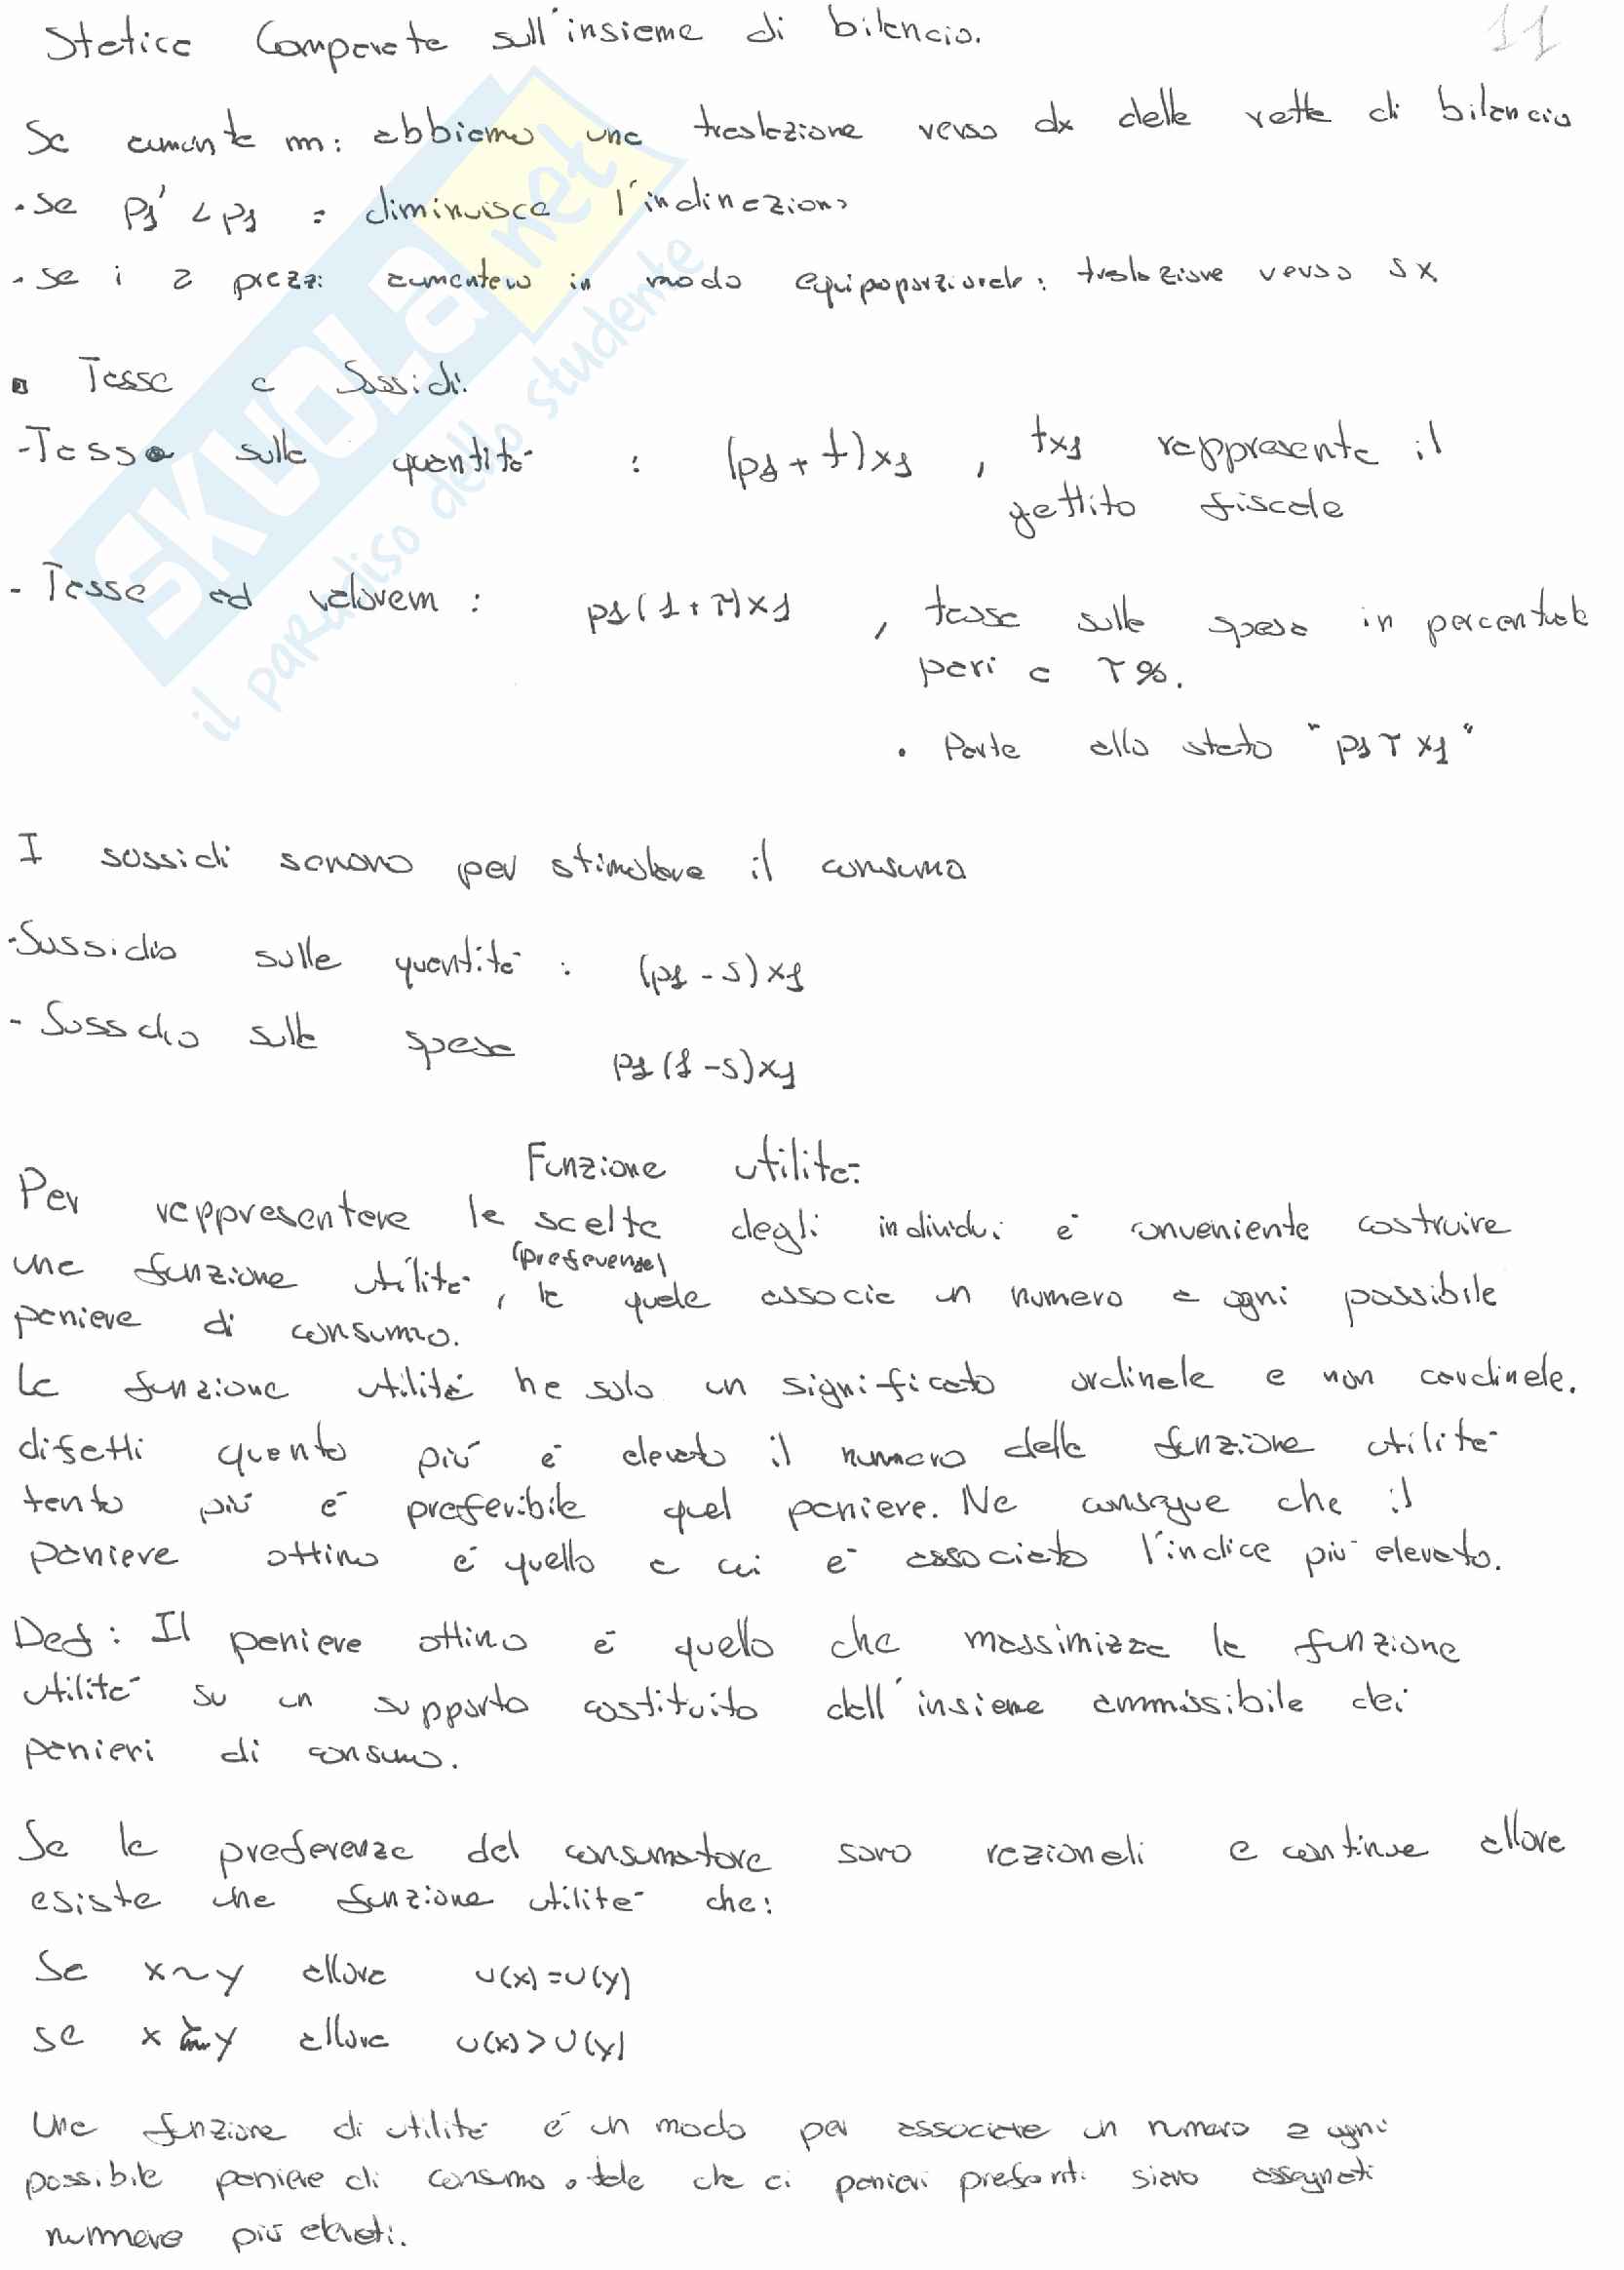 11
Statica Comparata sull'insieme di bilancio.
Se aumenta m: abbiamo una traslazione verso dx della retta di bilancio
• se p1' < p1 : diminuisce l'inclinazione
• se i 2 prezzi aumentano in modo equiproporzionale: traslazione verso sx
▪ Tasse e Sussidi:
- Tassa sulla quantità : (p1 + t)x1 , tx1 rappresenta il
gettito fiscale
- Tassa ad valorem : p1(1+τ)x1 , tassa sulla spesa in percentuale
pari a τ%.
• Parte allo stato "p1τx1"
I sussidi servono per stimolare il consumo
- Sussidio sulla quantità : (p1 - s)x1
- Sussidio sulla spesa p1(1-s)x1
Funzione utilità:
Per rappresentare le scelte degli individui è conveniente costruire
(preferenze)
una funzione utilità, la quale associa un numero a ogni possibile
paniere di consumo.
La funzione utilità ha solo un significato ordinale e non cardinale.
difatti quanto più è elevato il numero della funzione utilità
tanto più è preferibile quel paniere. Ne consegue che il
paniere ottimo è quello a cui è associato l'indice più elevato.
Def: Il paniere ottimo è quello che massimizza la funzione
utilità su un supporto costituito dall'insieme ammissibile dei
panieri di consumo.
Se le preferenze del consumatore sono razionali e continue allora
esiste una funzione utilità che:
Se x~y allora u(x)=u(y)
se x ≻ y allora u(x)>u(y)
Una funzione di utilità è un modo per associare un numero a ogni
possibile paniere di consumo, tale che ai panieri preferiti siano assegnati
numero più elevati.
SKUOLA.net
il paradiso dello studente